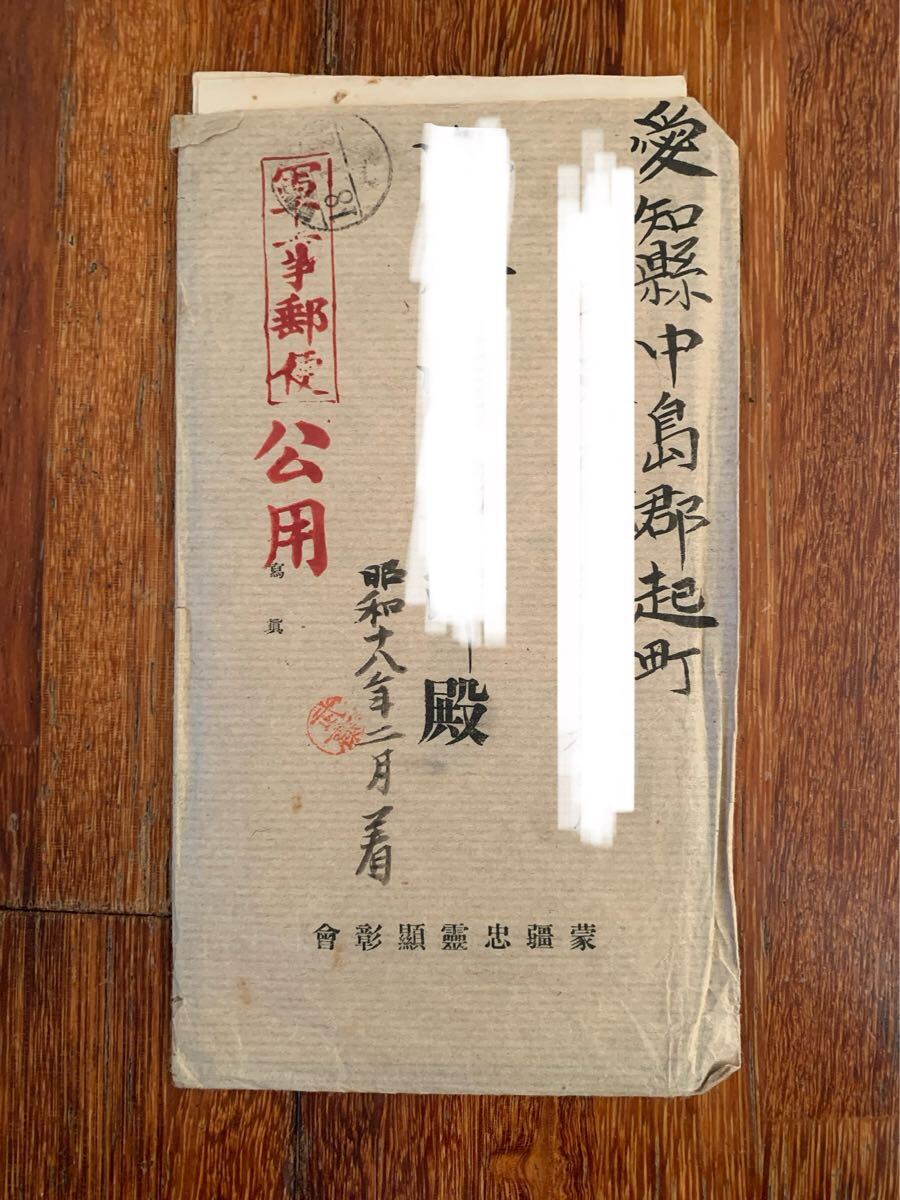 愛知縣中島郡起町
殿
昭和十八年二月着
軍事郵便
公用
寫眞
18
蒙疆忠靈顯彰會